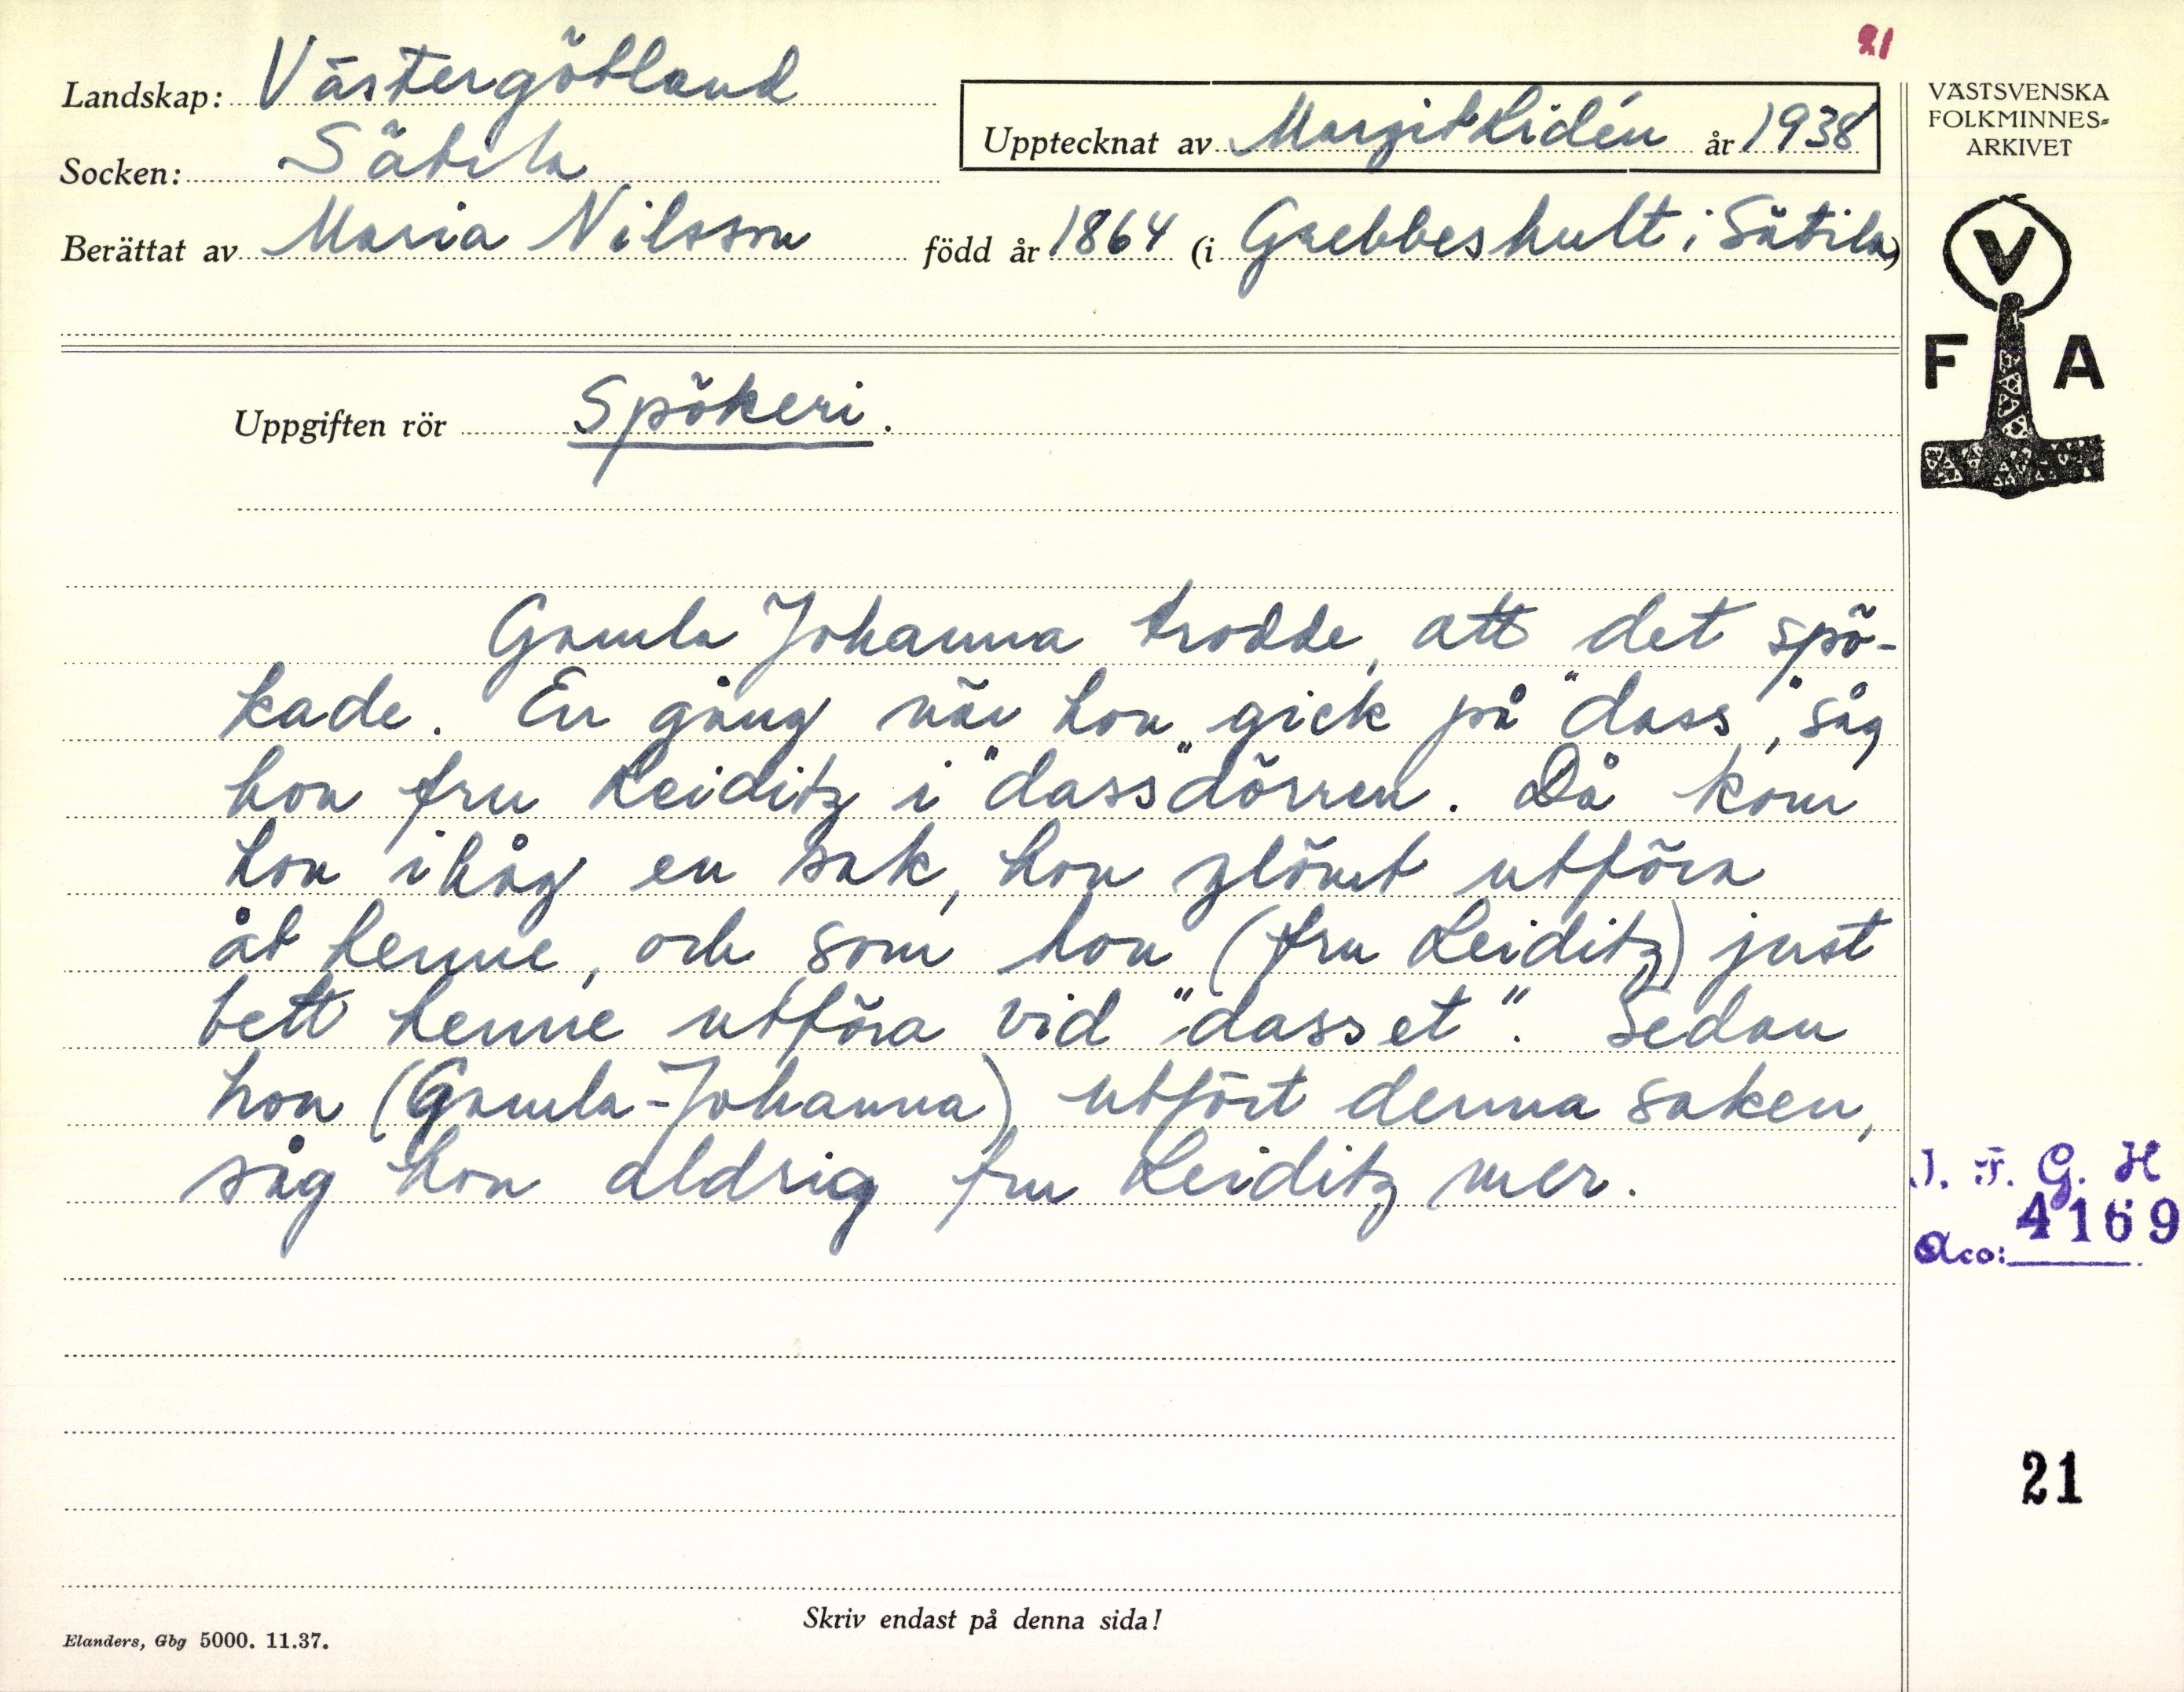 21
Landskap: Västergötland
Socken: Sätila
Berättat av Maria Nilsson född år 1864 (i Grebbeshult i Sätila)
Upptecknat av Margit Lidén år 1938
VÄSTSVENSKA
FOLKMINNES-
ARKIVET
V
F A
Uppgiften rör Spökeri.
Gamla Johanna trodde, att det spö-
kade. En gång när hon gick på "dass", såg
hon fru Leiditz i "dass"dörren. Då kom
hon ihåg en sak, hon glömt utföra
åt henne, och som hon (fru Leiditz) just
bett henne utföra vid "dasset". Sedan
hon (Gamla-Johanna) utfört denna saken,
såg hon aldrig fru Leiditz mer.
I. F. G. H
4169
Acc:
21
Skriv endast på denna sida!
Elanders, Gbg 5000. 11.37.